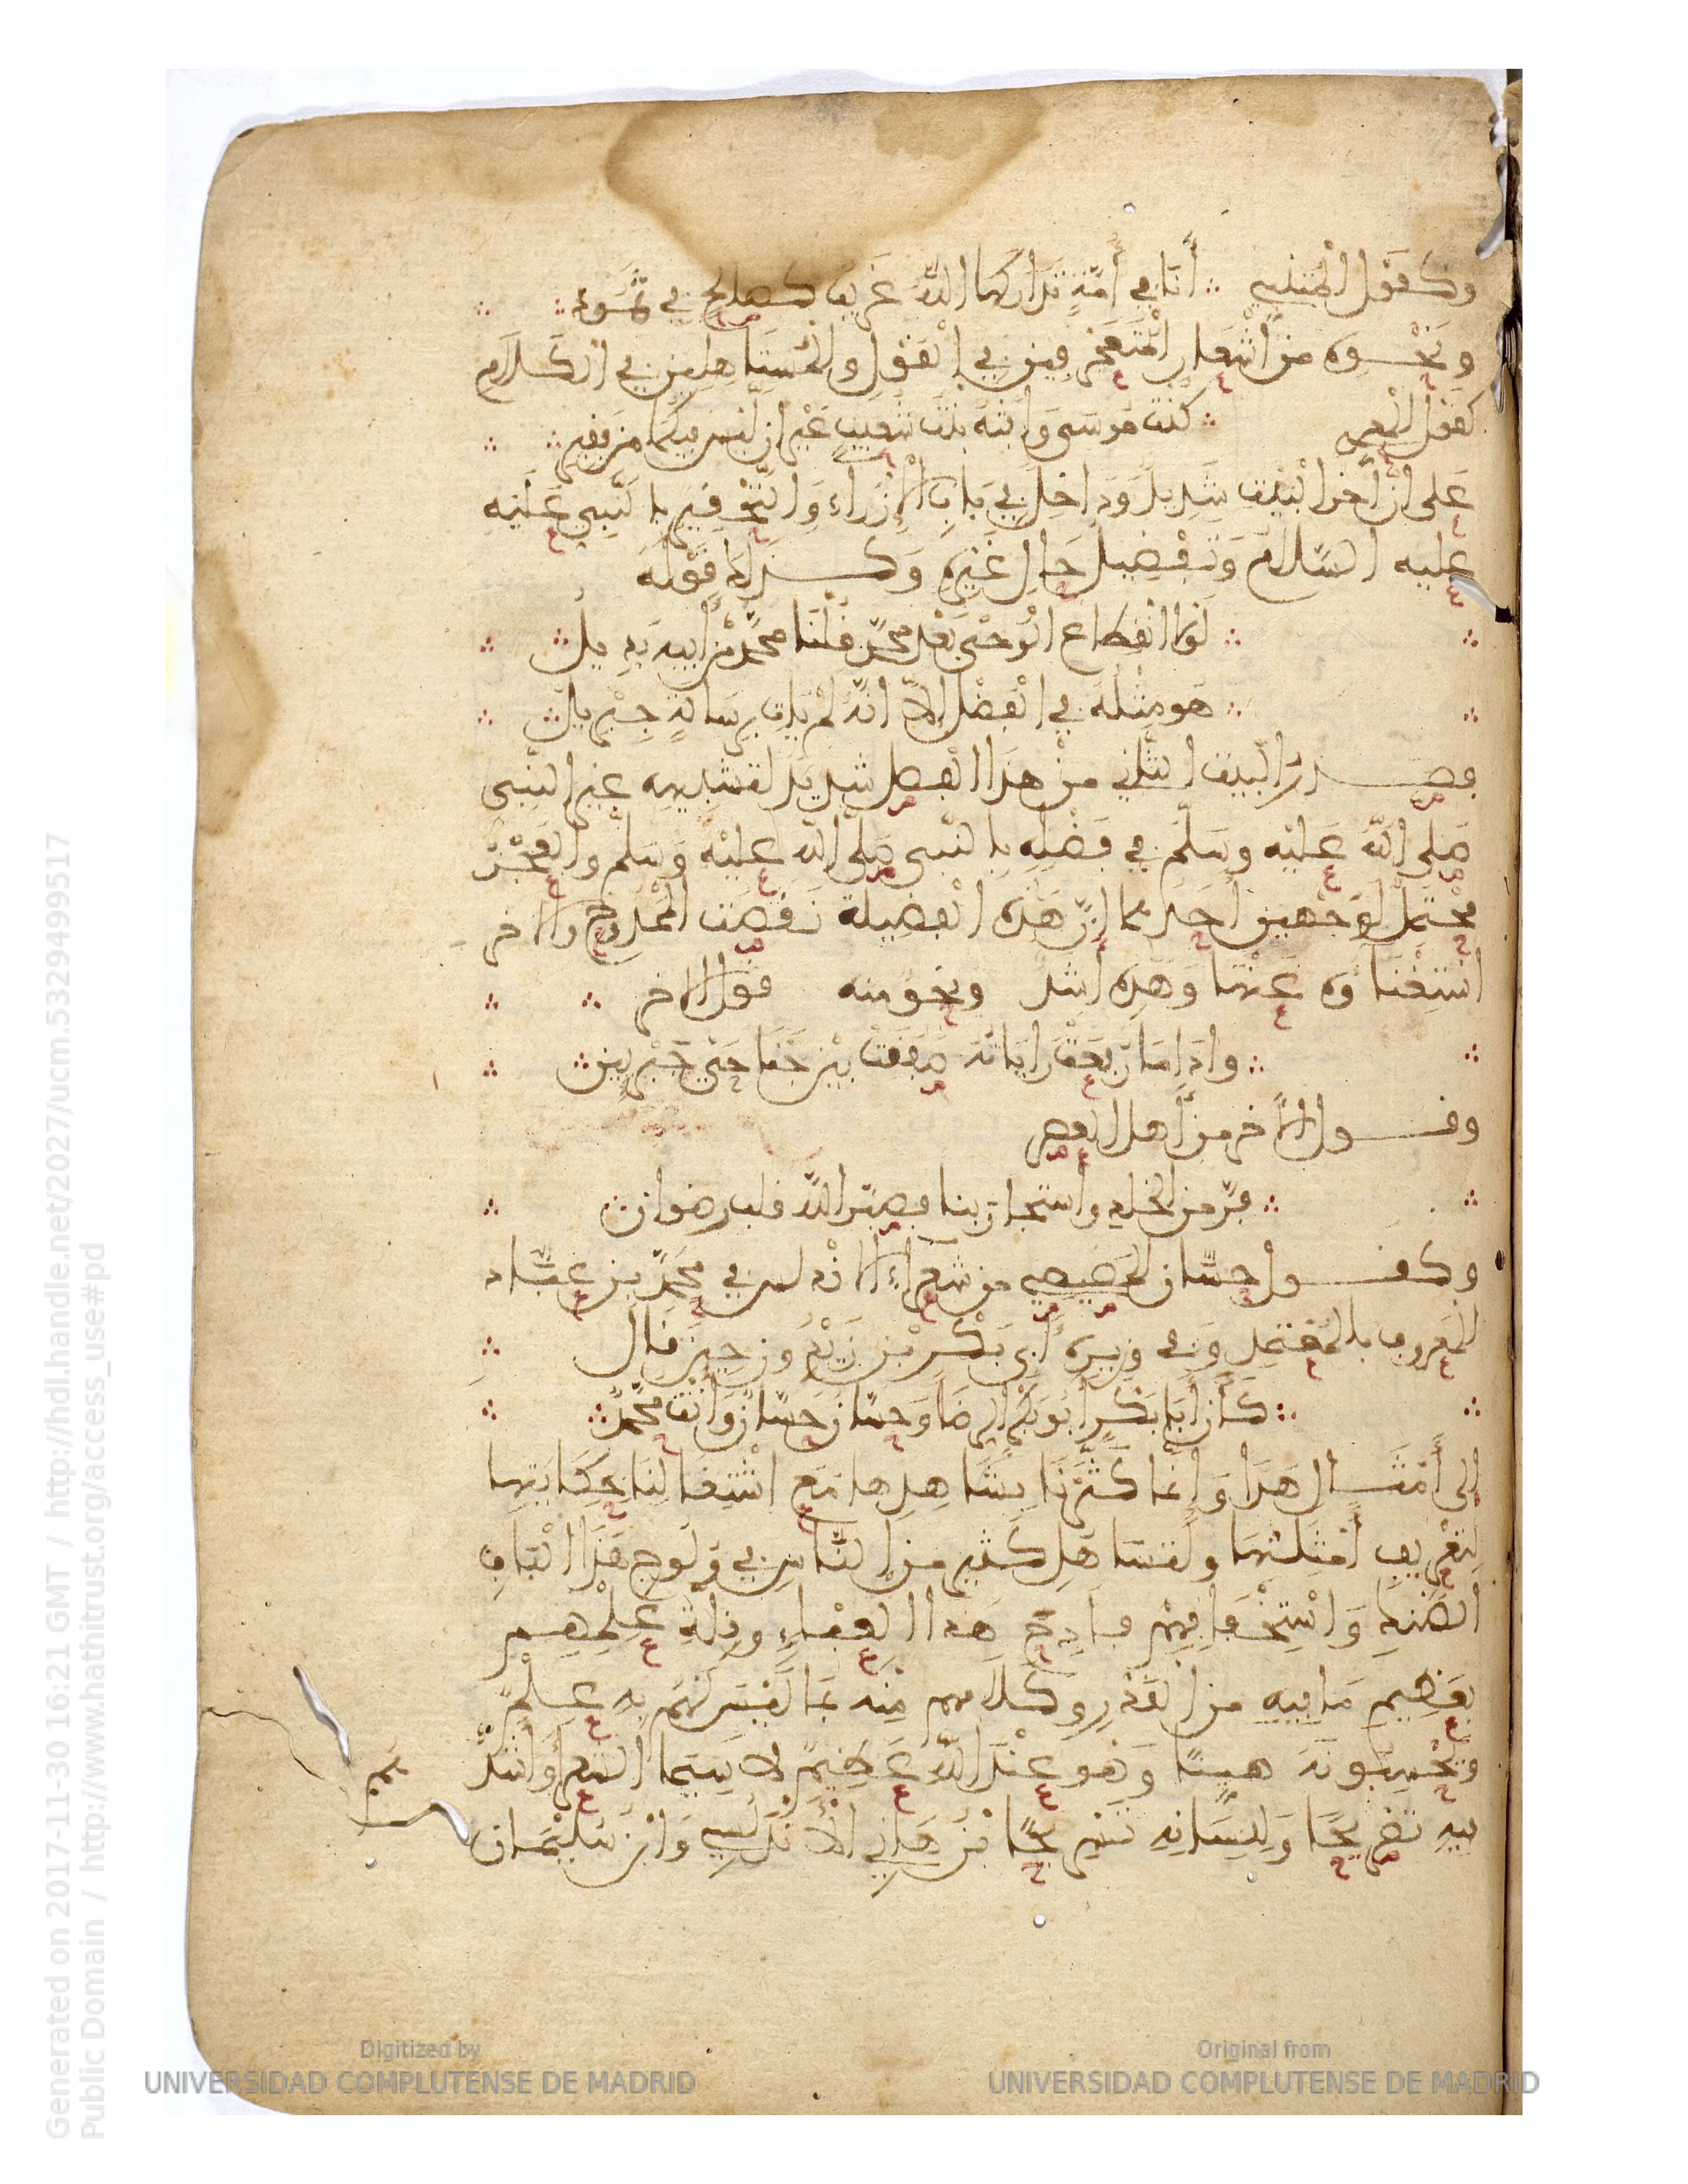 وكقول المتنبي ∴ أنا في أمة تداركها الله غريب كصالح في ثمود ∴ ∴
ونحوه من أشعار المتعجرفين في القول والمتساهلين في الكلام
كقول المعري ∴ كنت موسى وافته بنت شعيب غير ان ليس فيكما من فقير ∴ ∴
على ان آخر البيت شديد وداخل في باب الإزراء والتحقير بالنبي عليه
عليه السلام وتفضيل حال غيره وكذلك قوله
∴ ∴ لولا انقطاع الوحي بعد محمد قلنا محمد من أبيه بديل ∴ ∴
∴ ∴ هو مثله في الفضل إلا انه لم يأته برسالة جبريل ∴ ∴
فصدر البيت الثاني من هذا الفصل شديد لتشبيهه غير النبي
صلى الله عليه وسلم في فضله بالنبي صلى الله عليه وسلم والعجز
محتمل لوجهين أحدهما ان هذه الفضيلة نقصت الممدوح والآخر
استغناؤه عنها وهذه اشد ونحو منه قول الآخر ∴ ∴
∴ ∴ واذا ما رفعت راياته صفقت بين جناحي جبرين ∴ ∴
وقول الآخر من أهل العصر
∴ ∴ فر من الخلد واستجار بنا فصبر الله قلب رضوان ∴ ∴
وكقول حسان المصيصي من شعراء الاندلس في محمد بن عباد
المعروف بالمعتمد وفي وزيره أبي بكر بن زيدون حين قال ∴
∴ ∴ كأن أبا بكر أبو بكر الرضا وحسان حسان وأنت محمد ∴ ∴
إلى أمثال هذا وإنما كثرنا بشاهدها مع استثقالنا حكايتها
لتعريف أمثلتها ولتساهل كثير من الناس في ولوج هذا الباب
الضنك واستخفافهم فادح هذا العبء وقلة علمهم
بعظيم ما فيه من الوزر وكلامهم منه بما ليس لهم به علم
وتحسبونه هينا وهو عند الله عظيم لا سيما الشعراء وأشد
فيه تصريحا وللسانه تسريحا بن هاني الأندلسي وابن سليمان